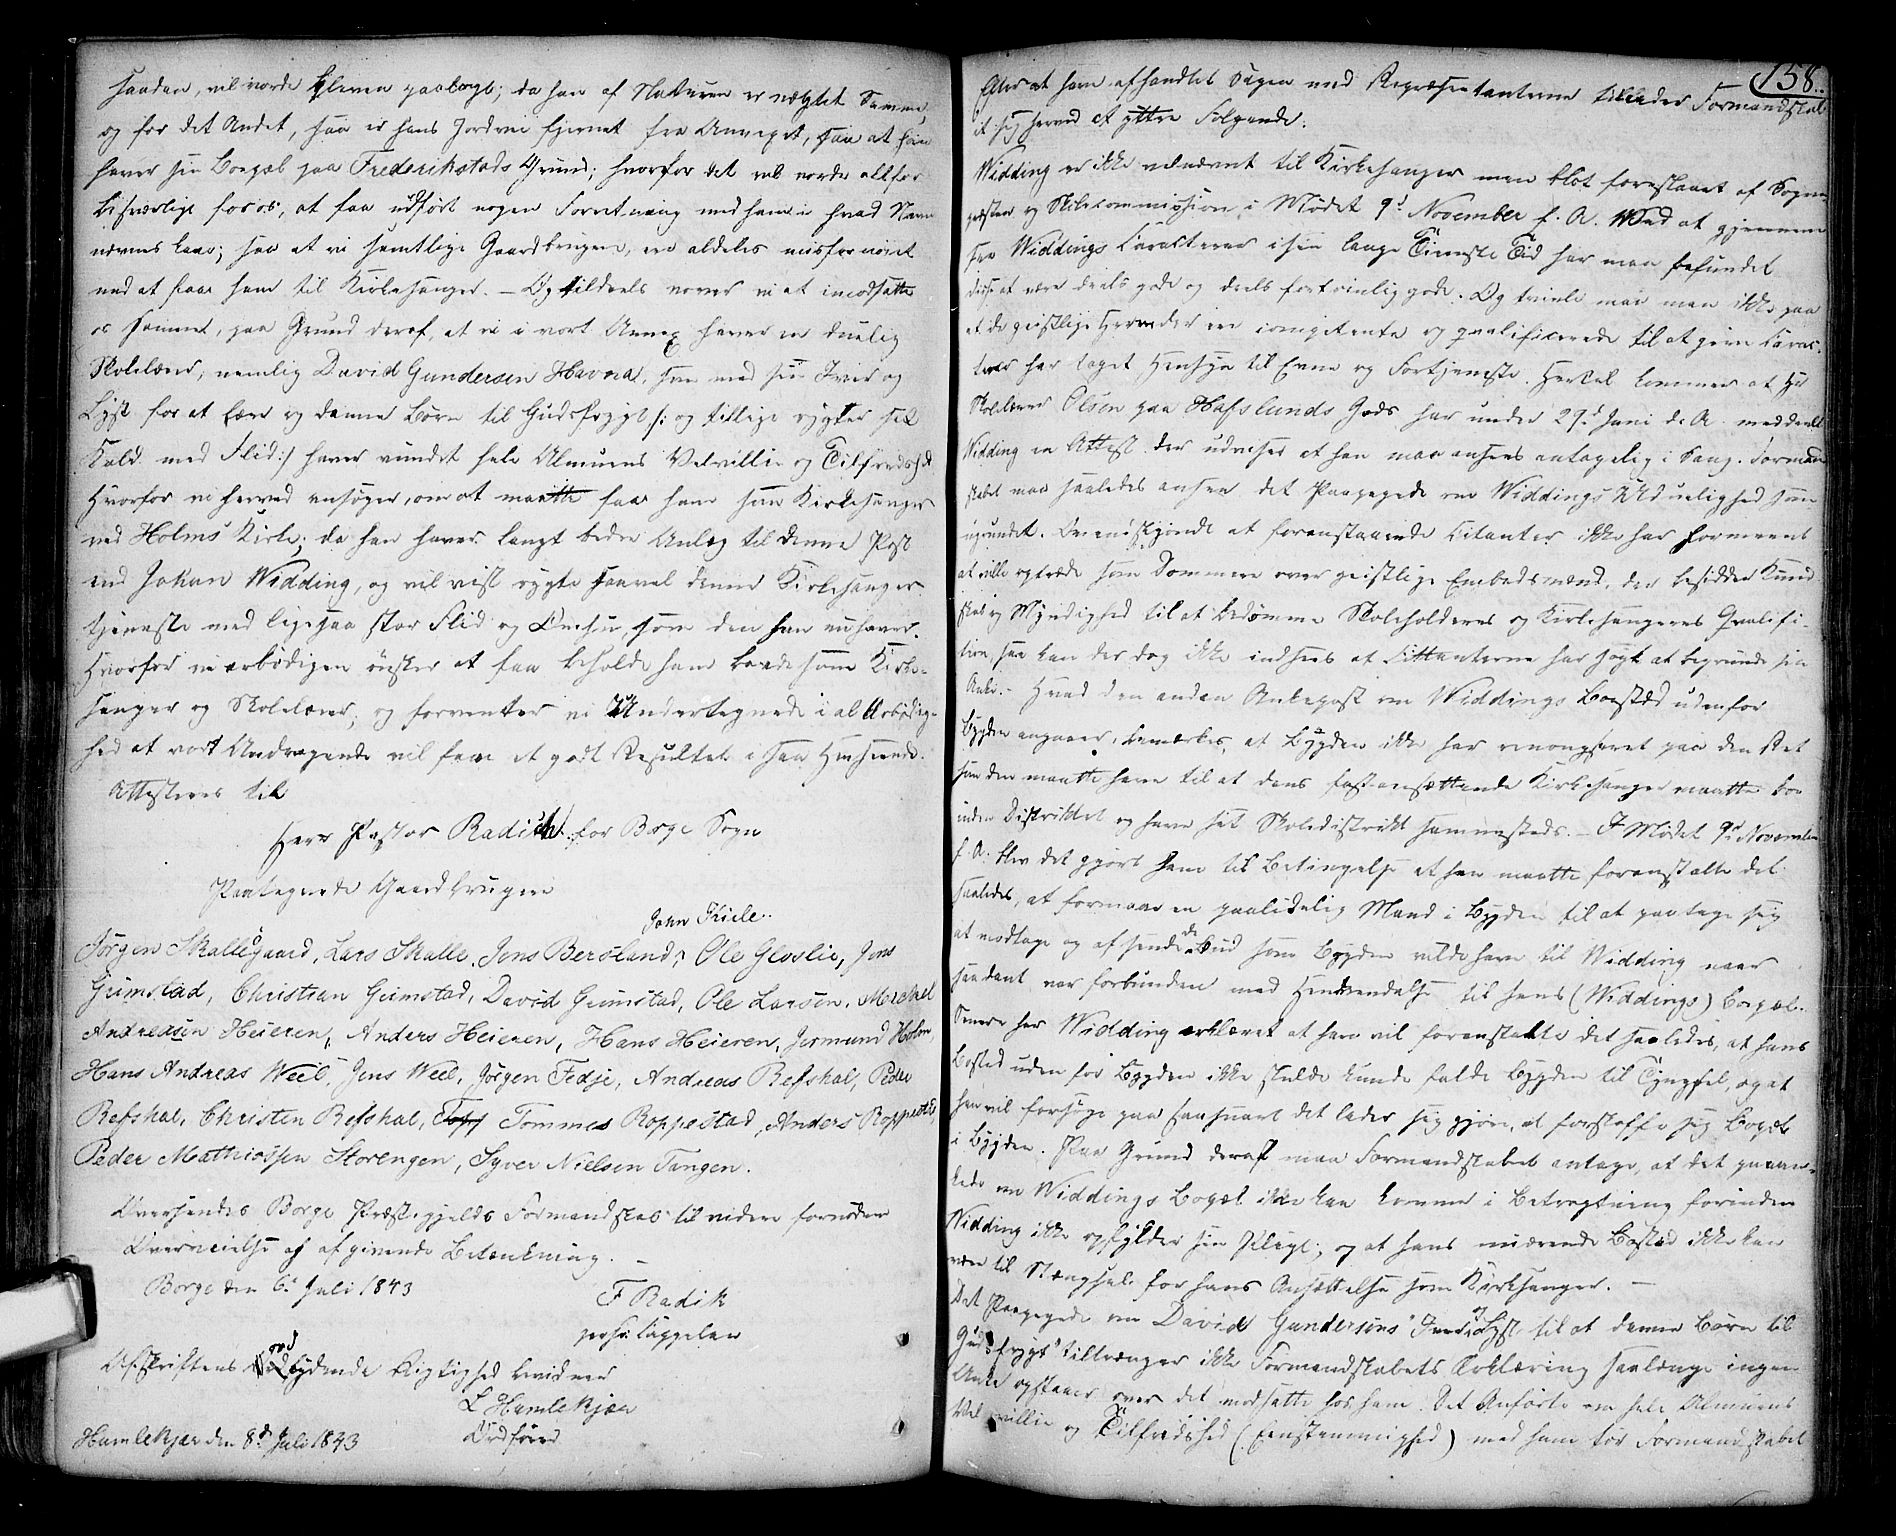 saadan, vil vorde Eleven paalagt; da han af Naturen er nægtet Samme,
og for det Andet, saa er hans Jordvei fjernet fra Annexet, saa at han
haver sin Bopæl paa Frederikstads Grund; hvorfor det vil vorde alt for
besværlige for os, at faa udført nogen Forretning med ham i hvad Navn
nævnes kan; saa at vi samtlige Gaardbrugere, ere aldeles misfornøiet
med at faae ham til Kirkesanger. – Og tildeels vover vi at imodsætte
os Samme, paa Grund deraf, at vi i vort Annex haver en duelig
Skolelærer, nemlig David Gundersen Havnra, som med sin Iver og
Lyst for at lære og danne Børn til Gudsfrygt /: og tillige rygter sit
Kald med Flid :/ haver vundet hele Almuens Velvillie og Tilfredshed
Hvorfor vi herved ansøger, om at maatte faae ham som Kirkesanger
ved Holms Kirke; da han haver langt bedre Anlæg til denne Post
end Johan Widding, og vil vist rygte saavel denne Kirkesanger-
tjeneste med ligesaa stor Flid og Omhu, som den han nu haver.
Hvorfor vi ærbødigen ønsker at faa beholde ham baade som Kirke-
sanger og Skolelærer; og forventer vi Undertegnede i al Ærbødig-
hed at vort Andragende vil faae et godt Resultat i saa Henseende.
Attesteres til
Herr Pastor Radich for Borge Sogn
Paategnede Gaardbrugere
John Kiele..
Jørgen Skallegaard, Lars Skalle, Jens Bersland, Ole Gloslie, Jens
Grimstad, Christian Grimstad, David Grimstad, Ole Larsen, Mickel
Andreasen Heieren, Anders Heieren, Hans Heieren, Jermund Holm,
Hans Andreas Weel, Jens Weel, Jørgen Fedje, Andreas Refshal, Peder
Refshal, Christen Refshal, Tommes Roppestad, Anders Roppestad,
Peder Mathiassen Storengen, Syver Nielsen Tangen.
Oversendes Borge Præstegjelds Formandskab til videre fornøden
Overveielse og afgivende Betænkning. –
Borge den 6te Juli 1843
F Radik
pers: Cappelan
Afskriftens ordlydende Rigtighed bevidner
L Hamlekjær
Ordfører
Hamlekjær den 8de Juli 1843
158.
Efter at have afhandlet Sagen med Repræsentanterne tillader Formandskab-
et sig herved at yttre Følgende:
Widding er ikke udnævnt til Kirkesanger men blot foreslaaet af Sogne-
præsten og Skolecommission i Mødet 9de November f. A. Ved at gjennem
see Widdings Caracterer i sin lange Tieneste Tid har man befundet
disse at være deels gode og deels fortrinlig gode. Og tvivle maa man ikke paa
at de geistlige Herrer der ere competente og qvalificerede til at give Carac-
terer har taget Hensyn til Evne og Fortjeneste. Hertil kommer at Hr
Skolelærer Olsen paa Hafslunds Gods har under 29de Juni d. A. meddeelt
Widding en Attest der udviser at han maa ansees antagelig i Sang. Formand
skabet maa saaledes ansee det Paaagede om Widdings Uduelighed som
ugrundet. Omendskjøndt at foranstaaende Citanter ikke har formeent
at ville optræde som Dommere over geistlige Embedsmænd, der besidder Kund
skab og Myndighed til at bedømme Skoleholderes og Kirkesangeres Qvalifi-
tion, saa kan der dog ikke indsees at Citanterne har søgt at begrunde sin
Anke. – Hvad den anden Ankepost om Widdings Bosted udenfor
Bygden angaaer, bemærkes, at Bygden ikke har renongseret paa den Ret
som den maatte have til at dens fastansættende Kirkesanger maatte boe
inden Districtet og have sit Skoledistrikt sammesteds. – I Mødet 9de November
f. A. blev det gjort ham til Betingelse at han maatte foranstalte det
saaledes, at formaae en paalidelig Mand i Bygden til at paatage sig
at modtage og afsende de Bud som Bygden vilde have til Widding naar
saadant var forbunden med Henvendelse til hans (Widdings) Bopæl.
Senere har Widding erklæret at han vil foranstalte det saaledes, at hans
Bosted uden for Bygden ikke skulde kunde falde Bygden til Tyngsel, og at
han vil forsøge paa saasnart det lader sig gjøre, at forskaffe sig Bopæl
i Bygden. Paa Grund deraf maa Formandskabet antage, at det paaan-
kede om Widdings Bopæl ikke kan komme i Betragtning forinden
Widding ikke opfylder sin Pligt; og at hans nuværende Bosted ikke kan
være til Stængsel for hans Ansættelse som Kirkesanger. –
Det Paaagede om David Gundersens "Iver og Lyst til at danne Børn til
Gudsfrygt" tiltrænger ikke Formandskabets Erklæring saalænge ingen
Anke opstaaer over det modsatte hos ham. Det Anførte om hele Almuens
Velvillie og Tilfredshed (Eenstemmighed) med ham tør Formandskabet